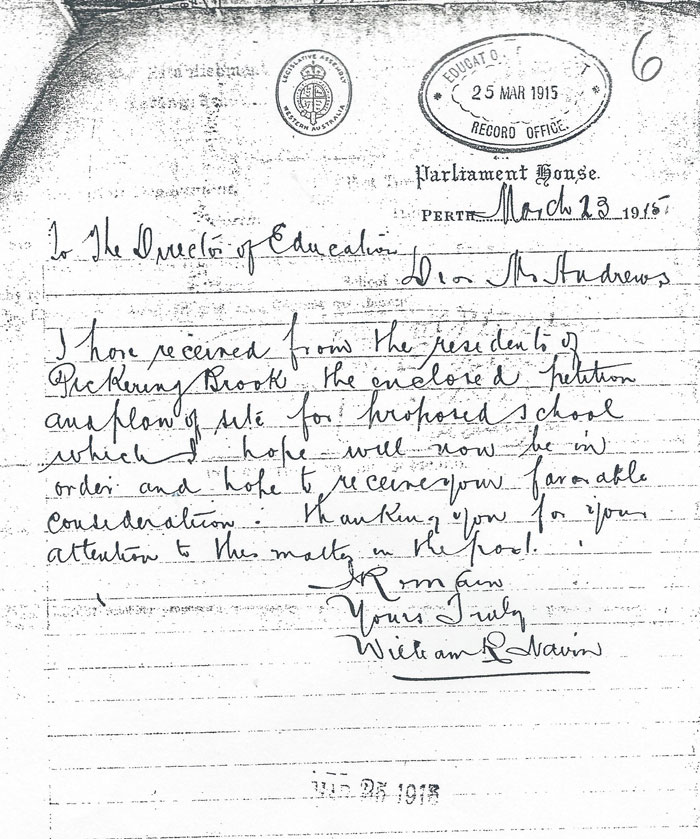 6
LEGISLATIVE ASSEMBLY
WESTERN AUSTRALIA
25 MAR 1915
RECORD OFFICE.
Parliament House.
PERTH March 23 1915
To The Director of Education
Dear Mr Andrews
I have received from the residents of
Pickering Brook the enclosed petition
and plan of site for proposed school
which I hope will now be in
order and hope to receive your favorable
consideration. thanking you for your
attention to this matter in the past.
I Remain
Yours Truly
William
25 1915